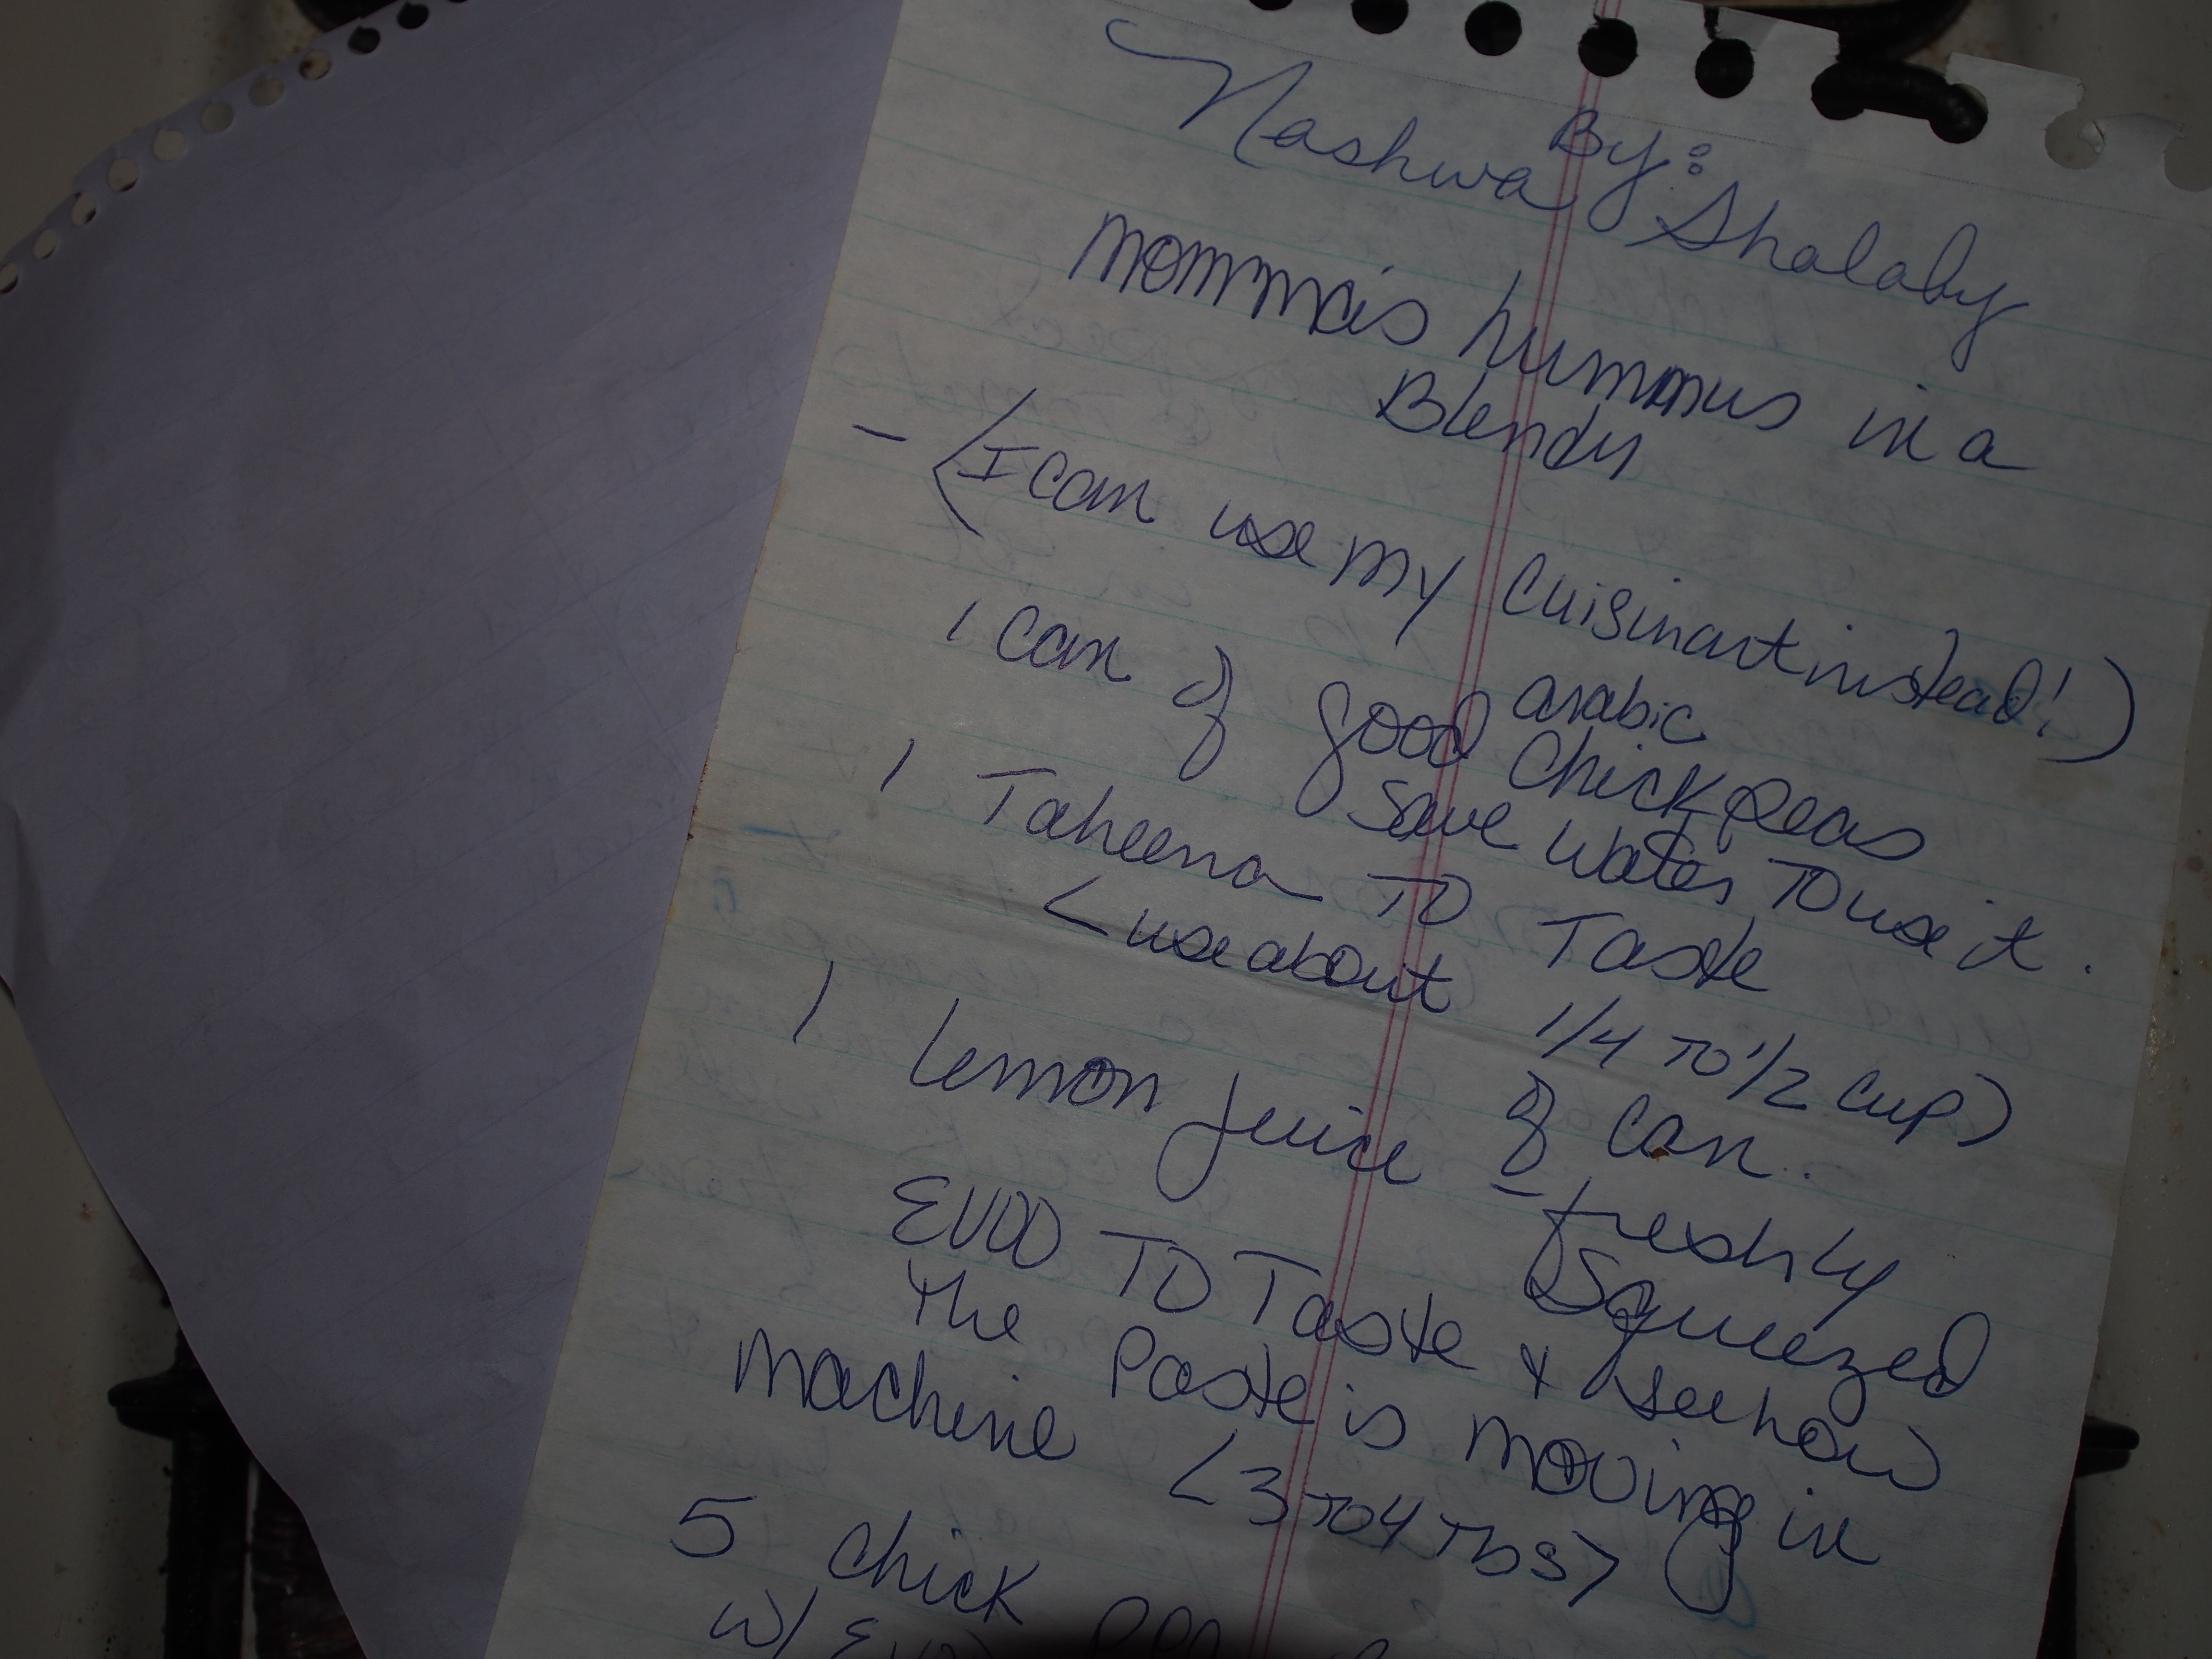 By:
Nashwa Shalaby
Momma's hummus in a
Blendr
- (I can use my Cuisinart instead!)
1 can of good arabic
Chick Peas
Save Water TO use it.
1 Taheena TO Taste
<use about 1/4 TO 1/2 cup>
of can.
1 lemon juice - freshly
Squeezed
EVOO TO Taste & see how
the Paste is moving in
machine <3 TO 4 Tbs>
5 chick
w/